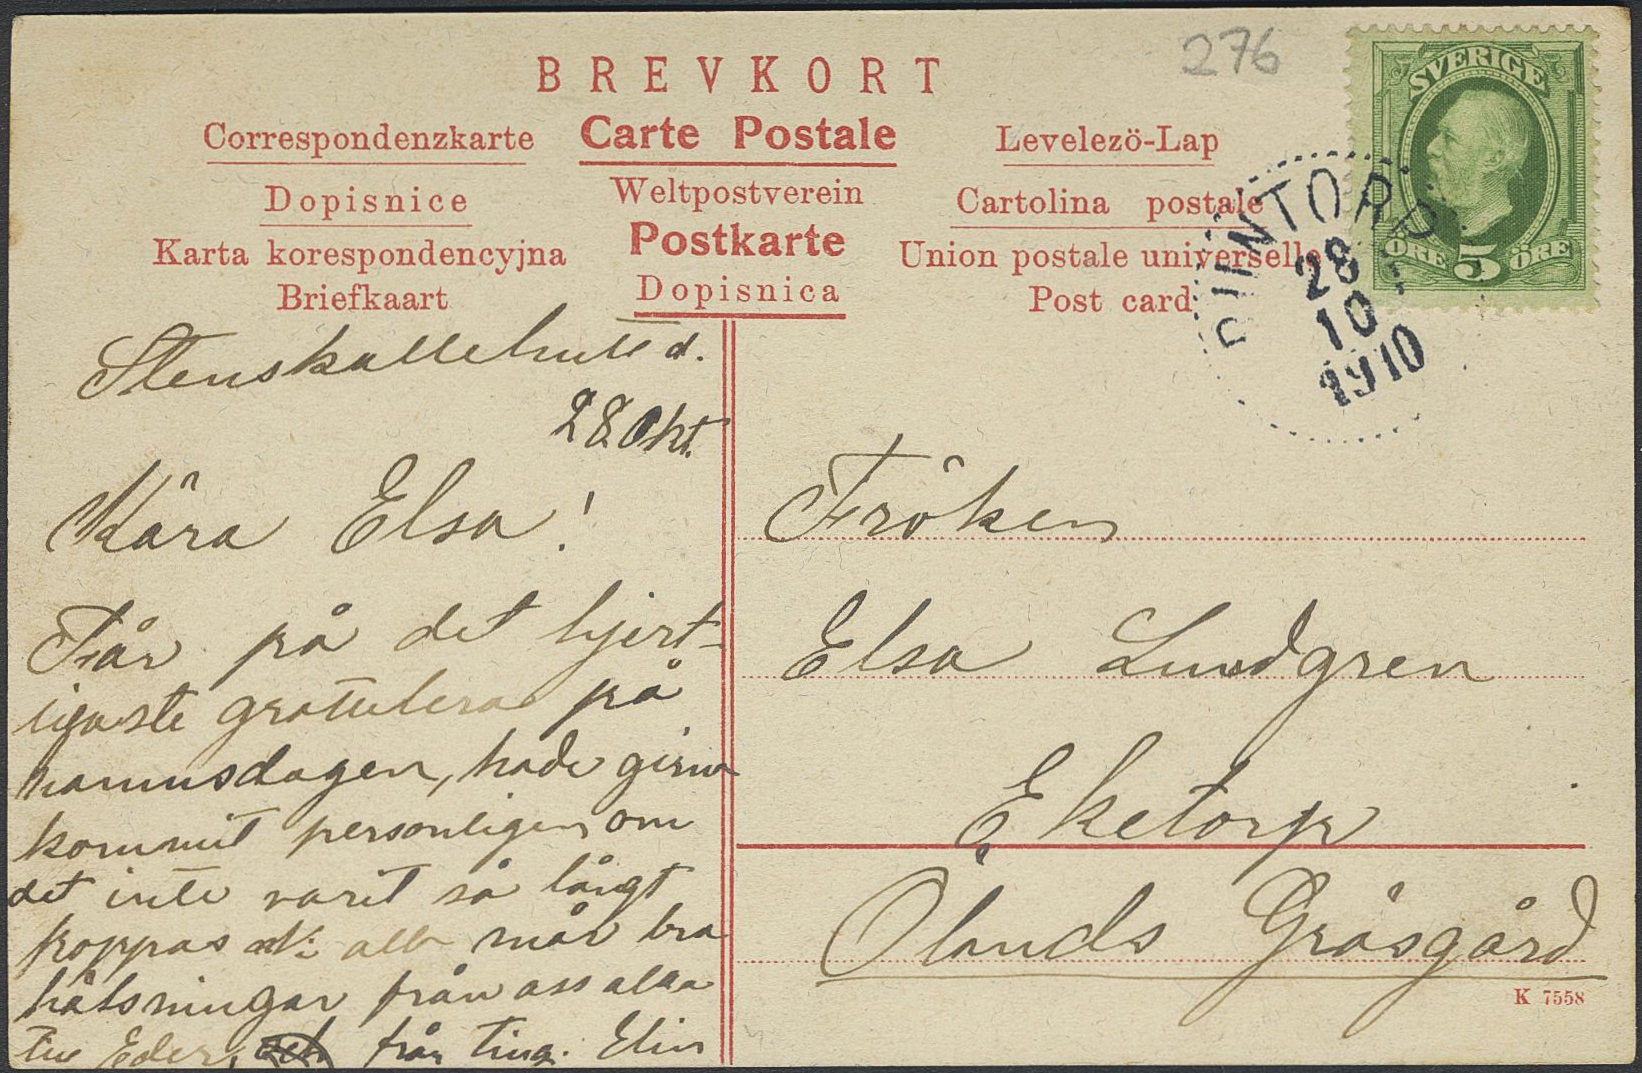 276
BREVKORT
Correspondenzkarte
Carte Postale
Levelezö-Lap
Dopisnice
Weltpostverein
Cartolina postale
Karta korespondencyjna
Postkarte
Union postale universelle
Briefkaart
Dopisnica
Post card
SVERIGE
ÖRE 5 ÖRE
RINTORP
28
10
1910
Stenskallehult d.
28 Okt.
Kära Elsa!
Får på det hjert-
ligaste gratulera på
namnsdagen, hade gerna
kommit personligen om
det inte varit så långt
hoppas att alla mår bra
hälsningar från oss alla
till Eder, från Elin
Fröken
Elsa Lundgren
Eketorp
Ölands Gräsgård
K 7558